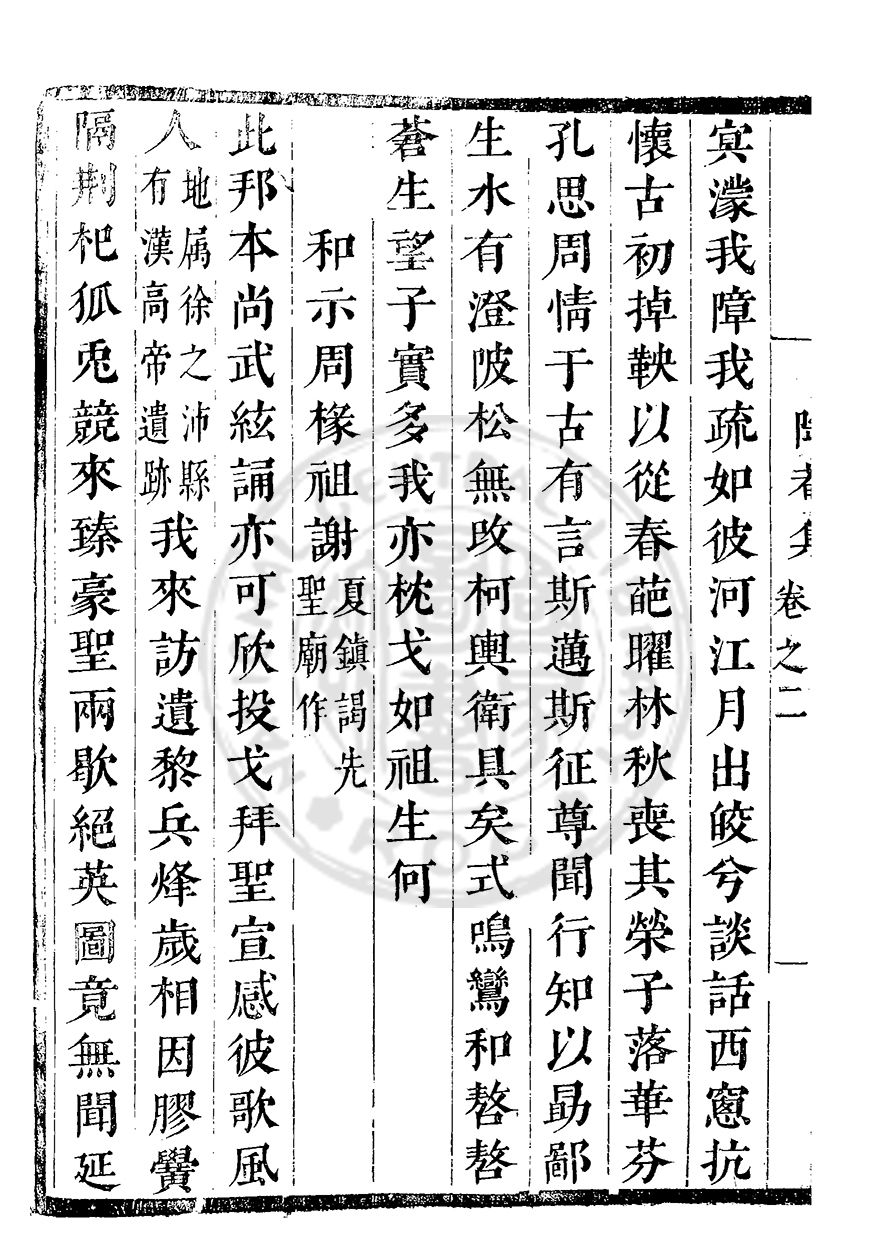 卷之二
冥濛我障我疏如彼河江月出皎兮談話西窻抗
懷古初掉鞅以從春葩曜林秋喪其榮子落華芬
孔思周情于古有言斯邁斯征尊聞行知以勗鄙
生水有澄陂松無改柯輿衛具矣式鳴鸞和嗸嗸
蒼生望子實多我亦枕戈如祖生何
和示周椽祖謝夏鎮謁先聖廟作
此邦本尚武絃誦亦可欣投戈拜聖宣感彼歌風
人地属徐之沛縣有漢高帝遺跡我來訪遺黎兵烽歲相因膠黌
隔荆杞狐兎競來臻豪聖兩歇絕英圖竟無聞延